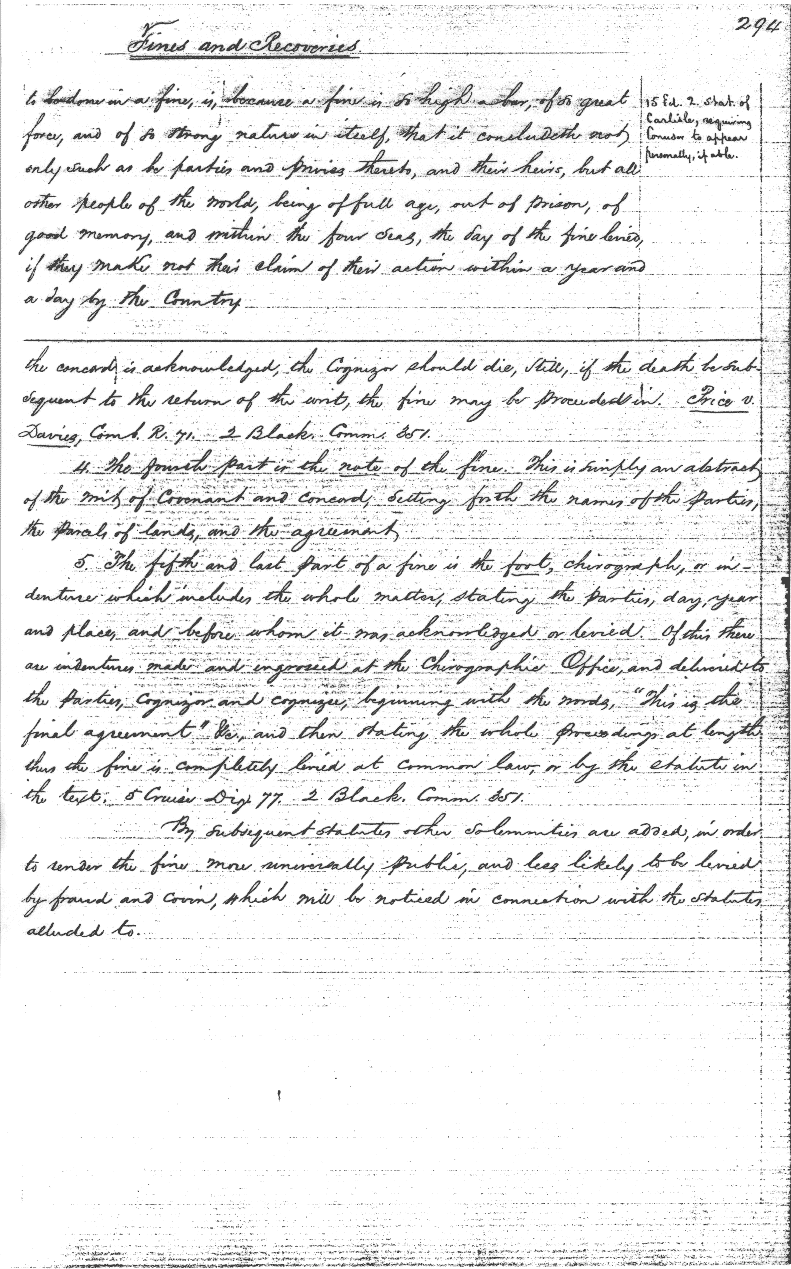 294
Fines and Recoveries
to be done in a fine, is, because a fine is so high a bar, of so great
force, and of so strong nature in itself, that it concludeth not
only such as be parties and privies thereto, and their heirs, but all
other people of the world, being of full age, out of prison, of
good memory, and within the four seas, the day of the fine levied,
if they make not their claim of their action within a year and
a day by the Country.
15 Ed. 2. Stat. of
Carlisle, requiring
Conusor to appear
personally, if able.
the concord is acknowledged, the Cognizor should die, still, if the death be sub-
sequent to the return of the writ, the fine may be proceeded in. Price v.
Davies, Comb. R. 71. 2 Black. Comm. 351.
4. The fourth part is the note of the fine. This is simply an abstract
of the writ of Covenant and concord, setting forth the names of the parties,
the parcels of lands, and the agreement.
5. The fifth and last part of a fine is the foot, chirograph, or in-
denture which includes the whole matter, stating the parties, day, year
and place, and before whom it was acknowledged or levied. Of this there
are indentures made and engrossed at the Chirographic Office, and delivered to
the parties, cognizor and cognizee, beginning with the words, "This is the
final agreement" &c., and then stating the whole proceedings at length
thus the fine is completely levied at common law, or by the statute in
the text. 5 Cruise Dig. 77. 2 Black. Comm. 351.
By subsequent statutes other solemnities are added, in order
to render the fine more universally public, and less likely to be levied
by fraud and covin, which will be noticed in connection with the statutes
alluded to.